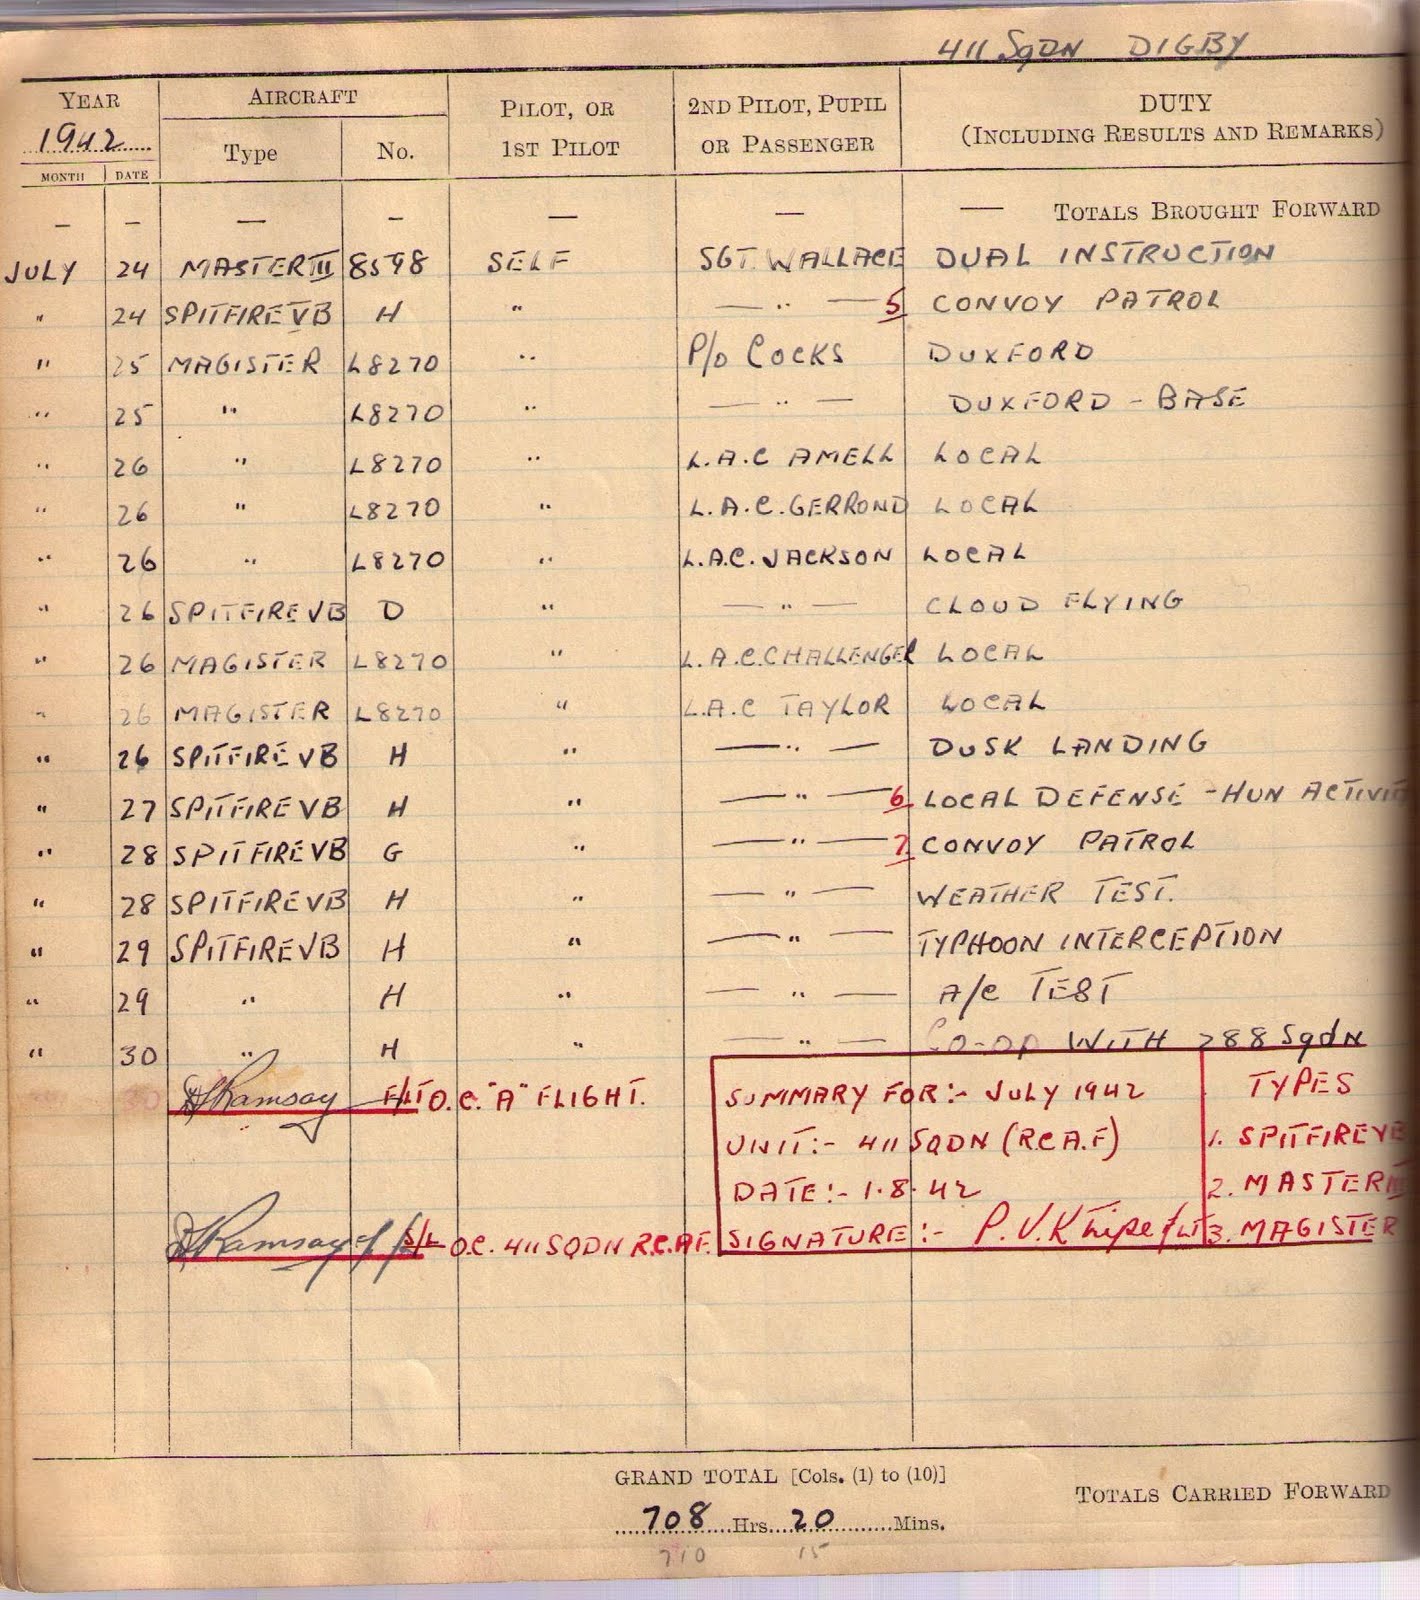 411 SqDN DIGBY
YEAR AIRCRAFT PILOT, OR 1ST PILOT 2ND PILOT, PUPIL OR PASSENGER DUTY (INCLUDING RESULTS AND REMARKS)
1942 Type No.
MONTH DATE
— — — — — — — TOTALS BROUGHT FORWARD
JULY 24 MASTER III 8598 SELF SGT. WALLACE DUAL INSTRUCTION
" 24 SPITFIRE VB H " — " — 5 CONVOY PATROL
" 25 MAGISTER L8270 " P/O COCKS DUXFORD
" 25 " L8270 " — " — DUXFORD - BASE
" 26 " L8270 " L.A.C AMELL LOCAL
" 26 " L8270 " L.A.C. GERROND LOCAL
" 26 " L8270 " L.A.C. JACKSON LOCAL
" 26 SPITFIRE VB D " — " — CLOUD FLYING
" 26 MAGISTER L8270 " L.A.C. CHALLENGER LOCAL
" 26 MAGISTER L8270 " L.A.C TAYLOR LOCAL
" 26 SPITFIRE VB H " — " — DUSK LANDING
" 27 SPITFIRE VB H " — " — 6 LOCAL DEFENSE - HUN
" 28 SPITFIRE VB G " — " — 7 CONVOY PATROL
" 28 SPITFIRE VB H " — " — WEATHER TEST.
" 29 SPITFIRE VB H " — " — TYPHOON INTERCEPTION
" 29 " H " — " — A/C TEST
" 30 " H " — " — CO-OP WITH 288 Sqdn
30 Ramsay F/LT O.C. "A" FLIGHT.
SUMMARY FOR:- JULY 1942 TYPES
UNIT:- 411 SQDN (R.C.A.F) 1. SPITFIRE VB
DATE:- 1.8.42 2. MASTER III
Ramsay S/L O.C. 411 SQDN R.C.A.F. SIGNATURE:- P.V.K Tripe f/Lt 3. MAGISTER
GRAND TOTAL [Cols. (1) to (10)]
TOTALS CARRIED FORWARD
708 Hrs. 20 Mins.
710 15